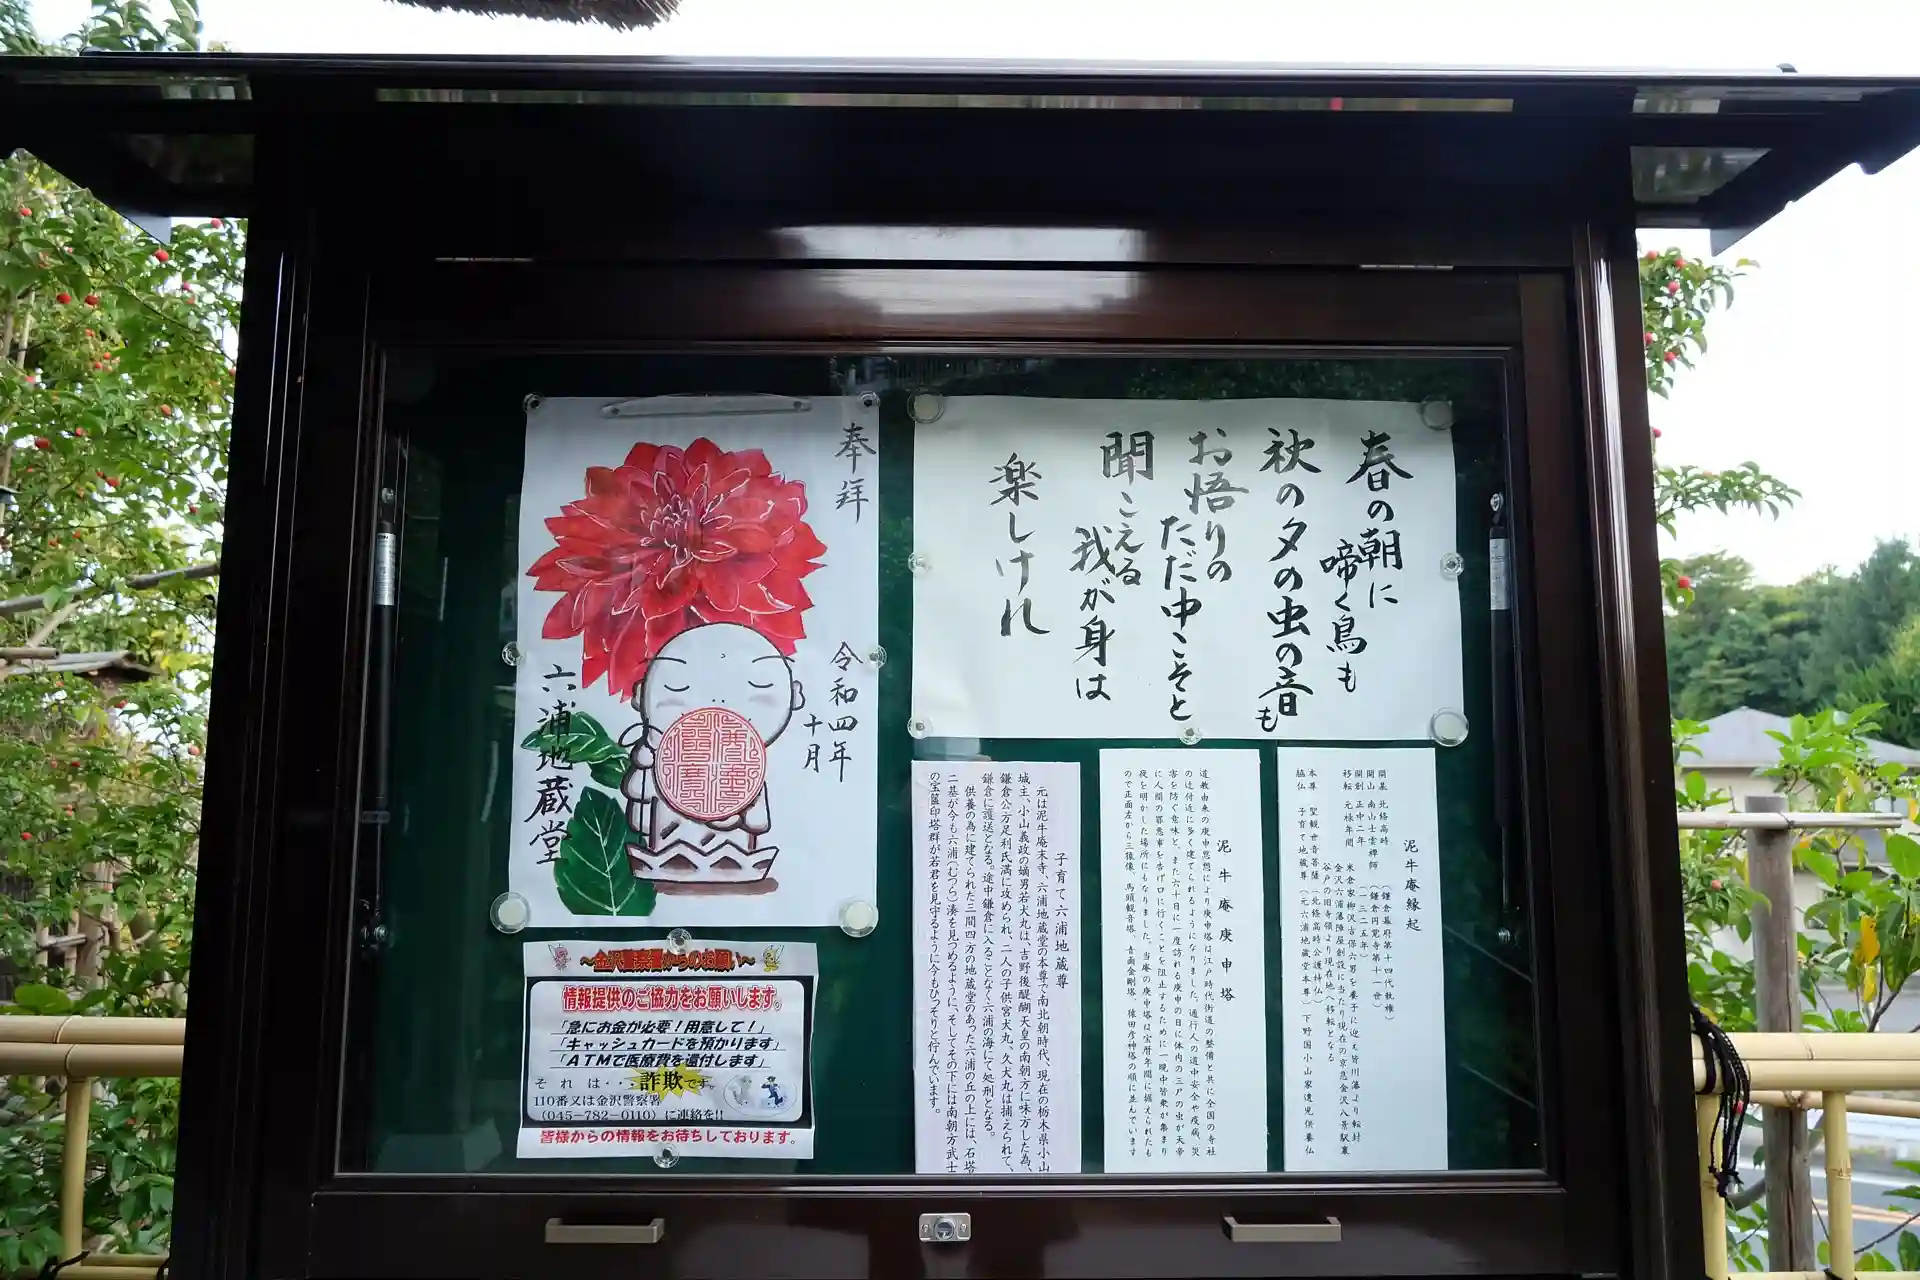 春の朝に
啼く鳥も
秋の夕の虫の音も
お悟りの
ただ中こそと
聞こえる
我が身は
楽しけれ
奉拝
令和四年
十月
六浦地蔵堂
泥牛庵縁起
開基 北條高時 (鎌倉幕府第十四代執権)
開山 南山士雲禅師 (鎌倉円覚寺第十一世)
開創 正中二年 (一三二五年)
移転 元禄年間 米倉家柳沢吉保六男を養子に迎え皆川藩より転封
金沢六浦藩陣屋創設に当たり現在の京急金沢八景駅裏
谷戸の旧寺領より現在地へ移転となる
本尊 聖観世音菩薩 (北條高時公護持仏)
脇仏 子育て地蔵尊 (元六浦地蔵堂本尊) 下野国小山家遺児供養仏
泥牛庵庚申塔
道教由来の庚申思想により庚申塔は江戸時代街道の整備と共に全国の寺社
の辻付近に多く建てられるようになりました。通行人の道中安全や疫病、災
害を防ぐ意味と、また六十日に一度訪れる庚申の日に体内の三尸の虫が天帝
に人間の罪悪事を告げ口に行くことを阻止するために一晩中皆衆が集まり
夜を明かした場所にもなりました。当庵の庚申塔は宝暦年間に据えられたも
ので正面左から三猿像、馬頭観音塔、青面金剛塔、猿田彦神塔の順に並んでいます
子育て六浦地蔵尊
元は泥牛庵末寺、六浦地蔵堂の本尊で南北朝時代、現在の栃木県小山
城主、小山義政の嫡男若犬丸は、吉野後醍醐天皇の南朝方に味方した為、
鎌倉公方足利氏満に攻められ、二人の子供宮犬丸、久犬丸は捕えられて、
鎌倉に護送となる。途中鎌倉に入ることなく六浦の海にて処刑となる。
供養の為に建てられた三間四方の地蔵堂のあった六浦の丘の上には、石塔
二基が今も六浦(むつら)湊を見つめるように、そしてその下には南朝方武士
の宝篋印塔群が若君を見守るように今もひっそりと佇んでいます。
～金沢警察署からのお願い～
情報提供のご協力をお願いします。
「急にお金が必要！用意して！」
「キャッシュカードを預かります」
「ATMで医療費を還付します」
それは・・・詐欺です。
110番又は金沢警察署
(045-782-0110)に連絡を!!
皆様からの情報をお待ちしております。